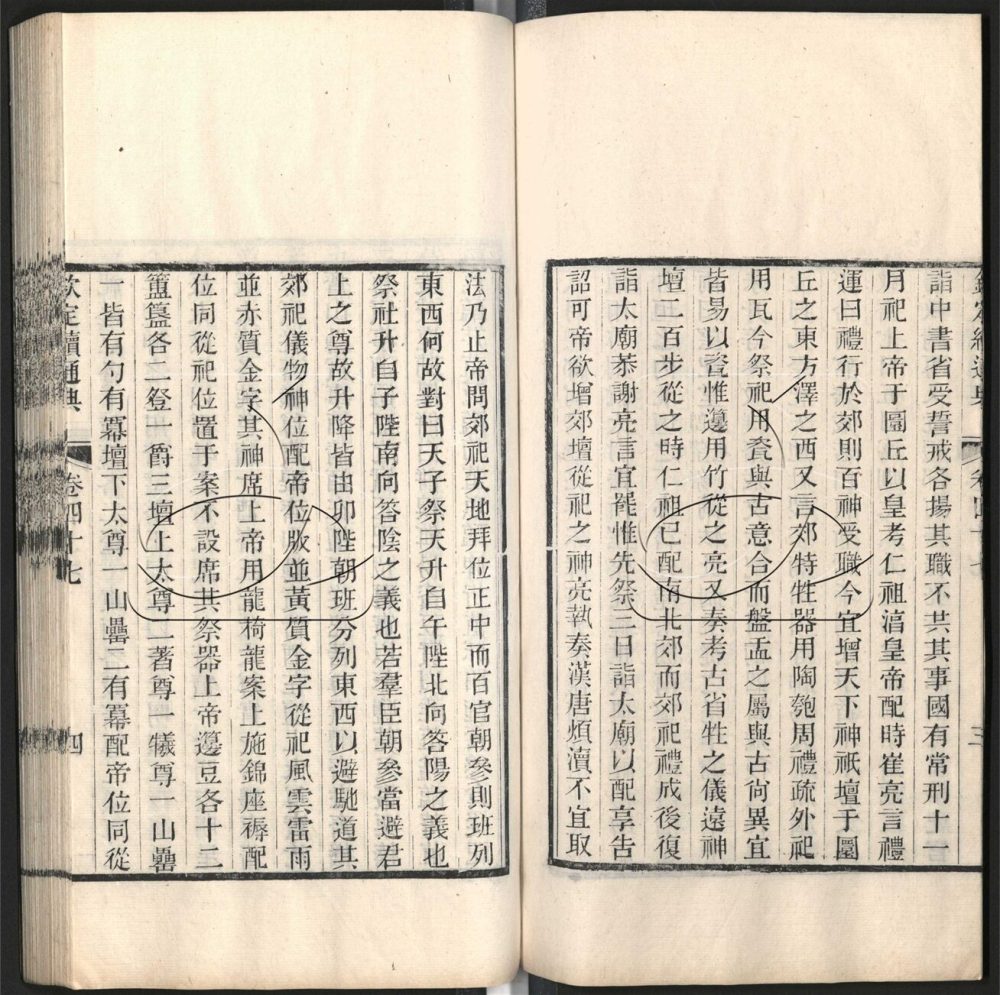 欽定續通典 卷四十七 三
詣中書省受誓戒各揚其職不共其事國有常刑十一
月祀上帝于圜丘以皇考仁祖淳皇帝配時崔亮言禮
運曰禮行於郊則百神受職今宜增天下神祇壇于圜
丘之東方澤之西又言郊特牲器用陶匏周禮疏外祀
用瓦今祭祀用瓷與古意合而盤盂之屬與古尚異宜
皆易以瓷惟籩用竹從之亮又奏考古省牲之儀遠神
壇二百步從之時仁祖已配南北郊而郊祀禮成後復
詣太廟恭謝亮言宜罷惟先祭三日詣太廟以配享告
詔可帝欲增郊壇從祀之神亮執奏漢唐煩瀆不宜取
法乃止帝問郊祀天地拜位正中而百官朝參則班列
東西何故對曰天子祭天升自午陛北向答陽之義也
祭社升自子陛南向答陰之義也若羣臣朝參當避君
上之尊故升降皆由卯陛朝班分列東西以避馳道其
郊祀儀物神位配帝位版並黃質金字從祀風雲雷雨
並赤質金字其神席上帝用龍椅龍案上施錦座褥配
位同從祀位置于案不設席其祭器上帝籩豆各十二
簠簋各二登一爵三壇上太尊二著尊一犧尊一山罍
一皆有勺有冪壇下太尊一山罍二有冪配帝位同從
欽定續通典 卷四十七 四